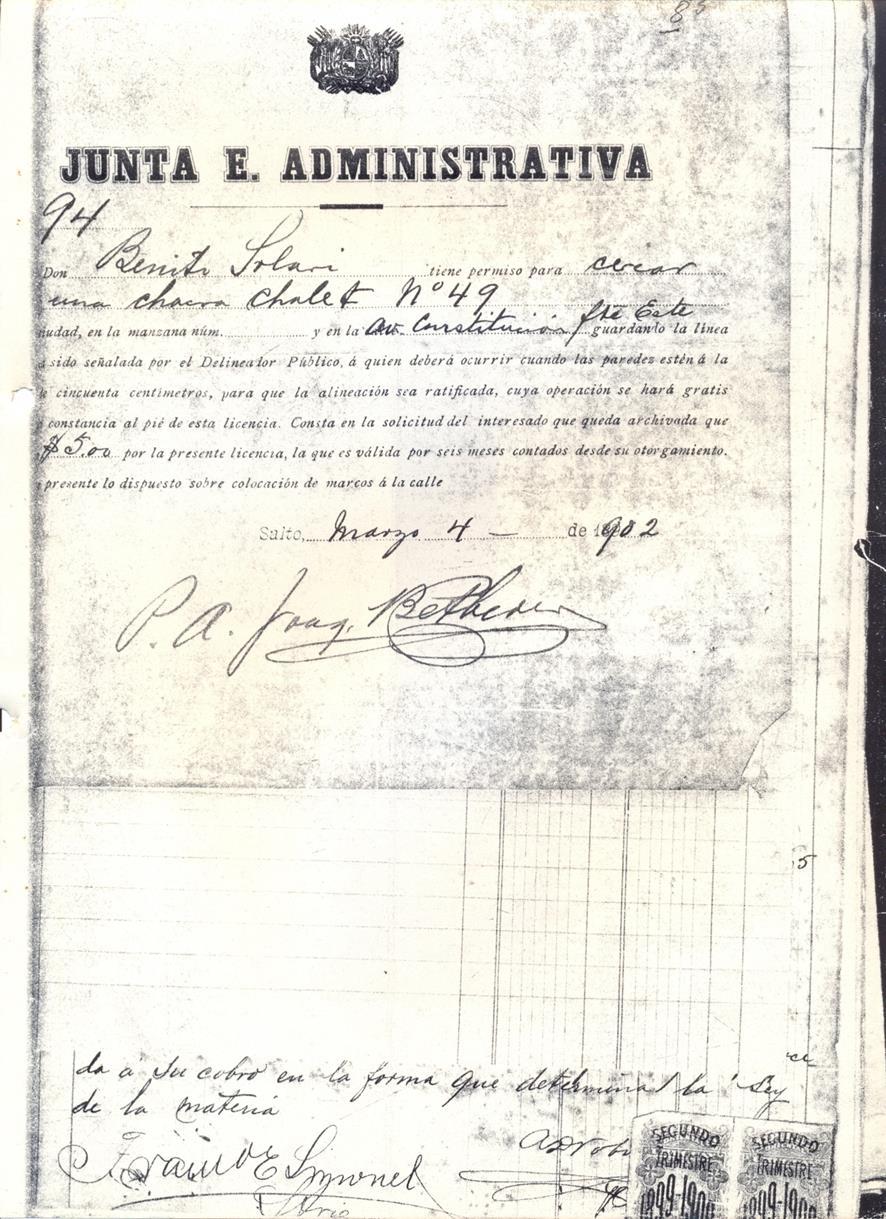 8
JUNTA E. ADMINISTRATIVA
94
Don Benito Solari tiene permiso para cercar
una chacra chalet Nº 49
iudad, en la manzana núm. y en la Av. Constitución fte Este guardando la línea
a sido señalada por el Delineador Público, á quien deberá ocurrir cuando las paredez estén á la
e cincuenta centímetros, para que la alineación sea ratificada, cuya operación se hará gratis
constancia al pié de esta licencia. Consta en la solicitud del interesado que queda archivada que
$ 5.00 por la presente licencia, la que es válida por seis meses contados desde su otorgamiento.
presente lo dispuesto sobre colocación de marcos á la calle
Salto, Marzo 4 - de 1902
P. A. Joaq.
5
da a su cobro en la forma que determina la Ley
de la materia
SEGUNDO SEGUNDO
TRIMESTRE TRIMESTRE
1899-1900 1899-1900